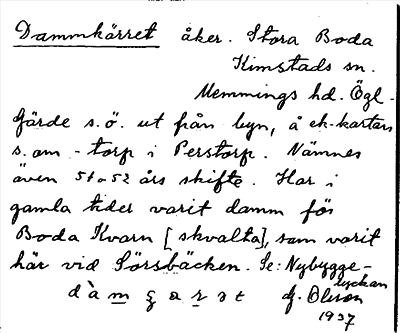 Dammkärret åker. Stora Boda
Kimstads sn.
Memmings hd. Ögl.
Gärde s.ö. ut från byn, å ek. kartan
s. om -torp i Perstorp. Nämnes
även 51 o 52 års skifte. Har i
gamla tider varit damm för
Boda Kvarn [skvalta], som varit
här vid Sörsbäcken. Se: Nybygge-
lyckan
G. Olsson
1937